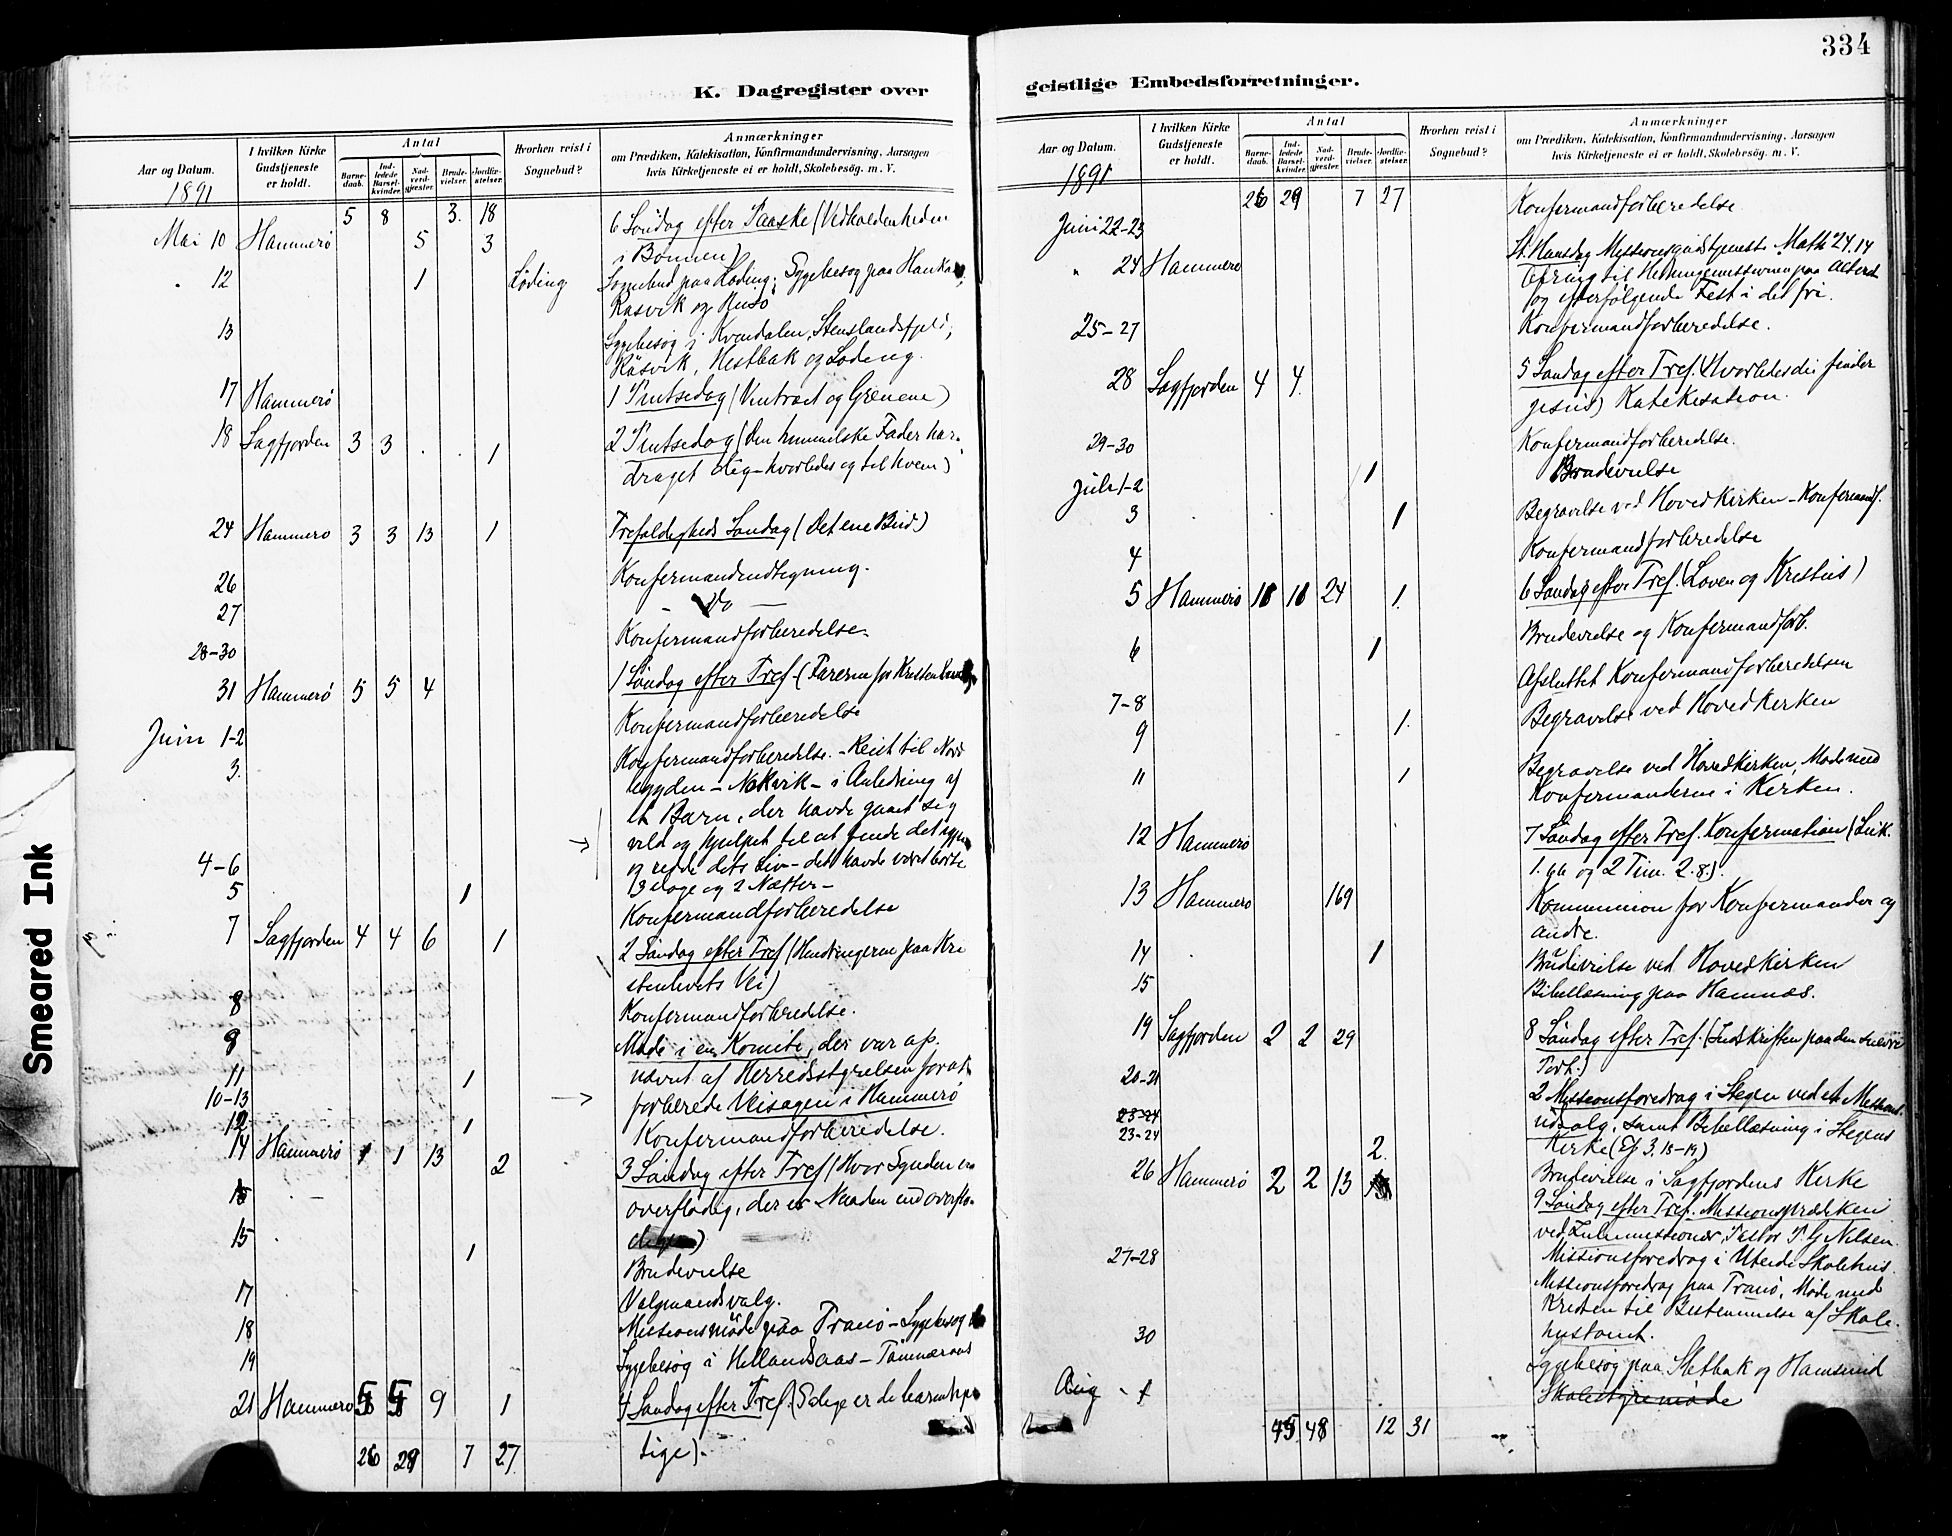 334
K. Dagregister over
Aar og Datum.
I hvilken Kirke Gudstjeneste er holdt.
Antal
Barnedaab.
Indledede Barselkvinder.
Nadverdgjester.
Brudevielser.
Jordfæstelser.
Hvorhen reist i Sognebud?
Anmærkninger
om Prædiken, Katekisation, Konfirmandundervisning, Aarsagen
hvis Kirketjeneste ei er holdt, Skolebesøg. m. V.
1891
5 8 3. 18
Mai 10 Hammerö 5 3 6 Söndag efter Paaske (Vedholdenheden
i Bønnen)
12 1 Løding Sognebud paa Løding; Sygebesøg paa
Rasvik og
13 Sygebesøg i Kvandalen, Stenslandsfjeld,
Räsvik, Nestbak og Løding.
17 Hammerö 1 Pintsedag (Vintræet og Grenene)
18 Sagfjorden 3 3 . . 1 2 Pintsedag (Den himmelske Fader har
draget dig – hvorledes og til hvem)
24 Hammerö 3 3 13 1 Trefoldigheds Søndag (Det ene Bud.)
26 Konfirmandindtegning.
27 – Do –
28-30 Konfirmandforberedelse.
31 Hammerö 5 5 4 1 Søndag efter Tref. (Farerne for
Juni 1-2 Konfirmandforberedelse
3. Konfirmandforberedelse. – Reist til Nord
bygden – Nakvik – i Anledning af
et Barn, der havde gaaet sig
vild og hjulpet til at finde det igjen
og redde dets Liv – det havde været borte
4-6 3 Dage og 2 Nætter –
5 1 Konfirmandforberedelse
7 Sagfjorden 4 4 6 1 2 Søndag efter Tref (Hindringerne paa Kri
stenlivets Vei)
8 Konfirmandforberedelse.
9 Møde i en Komite, der var op-
11 1 nævnt af Herredsstyrelsen for at
10-13 forberede Veisagen i Hammerö
12 1 Konfirmandforberedelse.
14 Hammerö 1 1 13 2 3 Søndag efter Tref (Hvor Synden er
overflødig, der er Naaden end overflø-
15
15 1 Brudevielse
17 Valgmandsvalg.
18 Missionsmöde paa Tranö – Sygebesøg
19 Sygebesøg i Hellandsaas –
21 Hammerö 5 5 9 1 4 Søndag efter Tref. (Salige er de barmhjer
tige).
26 29 7 27
geistlige Embedsforretninger.
Aar og Datum.
I hvilken Kirke Gudstjeneste er holdt.
Antal
Barnedaab.
Indledede Barselkvinder.
Nadverdgjester.
Brudevielser.
Jordfæstelser.
Hvorhen reist i Sognebud?
Anmærkninger
om Prædiken, Katekisation, Konfirmandundervisning, Aarsagen
hvis Kirketjeneste ei er holdt, Skolebesøg. m. V.
1891
26 29 7 27
Juni 22-23 Konfirmandforberedelse
" 24 Hammerö St. Hansdag Missionsgudstjeneste Math 24.14
Ofring til Hedningemissionen paa Alteret
og efterfølgende Fest i det fri.
25-27 Konfirmandforberedelse.
28 Sagfjorden 4 4 5 Søndag efter Tref. (Hvorledes du finder
Jesus) Katekisation.
29-30 Konfirmandforberedelse.
Juli 1-2 1 Brudevielse
3 1 Begravelse ved Hovedkirken – Konfirmandf.
4 Konfirmandforberedelse
5 Hammerö 11 11 24 1 6 Søndag efter Tref. (Loven og Kristus)
6 1 Brudevielse og Konfirmandforb.
7-8 Afsluttet Konfirmandforberedelsen
9 1 Begravelse ved Hovedkirken
11 1 Begravelse ved Hovedkirken, Møde med
Konfirmanderne i Kirken.
12 Hammerö 7 Søndag efter Tref. Konfirmation (Luk.
1.66 og 2 Tim. 2.8.).
13 Hammerö 169 Kommunion for Konfirmander og
andre.
14 1 Brudevielse ved Hovedkirken
15 Bibellæsning paa Hamnæs.
19 Sagfjorden 2 2 29 8 Søndag efter Tref. (Indskriften paa den snevre
Port.)
20-21 2 Missionsforedrag i Stegen ved et Missions-
23-24 udvalg, samt Bibellæsning i Stegens
23-24 Kirke (Ef 3, 15-19)
2 Brudevielse i Sagfjordens Kirke
26 Hammerö 2 2 13 9 Søndag efter Tref. Missionsprædiken
ved Zulumissionær, Pastor P. G. Nilsen.
27-28 Missionsforedrag i Uteide Skolehus.
Missionsforedrag paa Tranö, Møde med
Kredsen til Bestemmelse af Skole-
hustomt.
30 Sygebesøg paa og Hamsund
Aug 1 Skolestyremøde
45 48 12 31
Smeared Ink